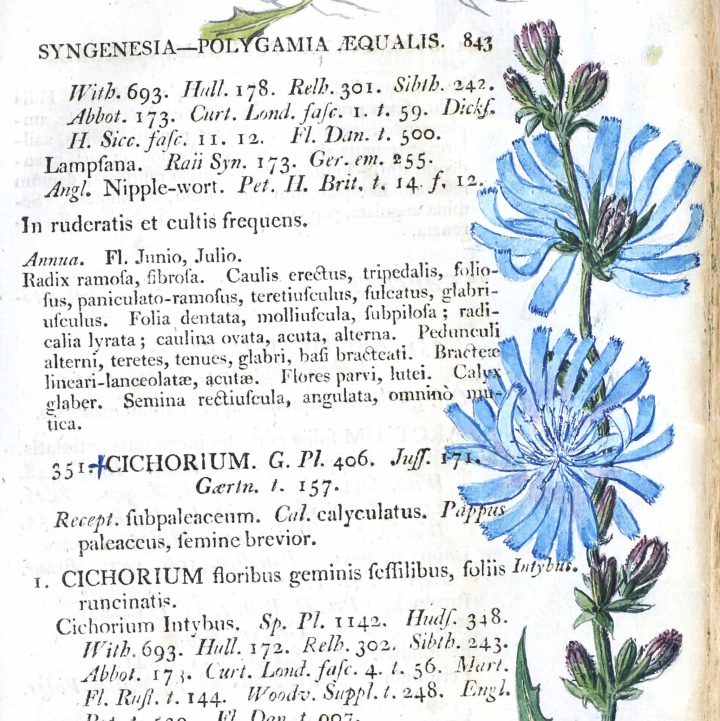 SYNGENESIA—POLYGAMIA ÆQUALIS. 843
With. 693. Hull. 178. Relh. 301. Sibth. 242.
Abbot. 173. Curt. Lond. faſc. 1. t. 59. Dickſ.
H. Sicc. faſc. 11. 12. Fl. Dan. t. 500.
Lampſana. Raii Syn. 173. Ger. em. 255.
Angl. Nipple-wort. Pet. H. Brit. t. 14. f. 12.
In ruderatis et cultis frequens.
Annua. Fl. Junio, Julio.
Radix ramoſa, fibroſa. Caulis erectus, tripedalis, folio-
ſus, paniculato-ramoſus, teretiuſculus, ſulcatus, glabri-
uſculus. Folia dentata, molliuſcula, ſubpiloſa; radi-
calia lyrata; caulina ovata, acuta, alterna. Pedunculi
alterni, teretes, tenues, glabri, baſi bracteati. Bracteæ
lineari-lanceolatæ, acutæ. Flores parvi, lutei. Calyx
glaber. Semina rectiuſcula, angulata, omninò mu-
tica.
351. CICHORIUM. G. Pl. 406. Juſſ. 171.
Gærtn. t. 157.
Recept. ſubpaleaceum. Cal. calyculatus. Pappus
paleaceus, ſemine brevior.
1. CICHORIUM floribus geminis ſeſſilibus, foliis Intybus.
runcinatis.
Cichorium Intybus. Sp. Pl. 1142. Hudſ. 348.
With. 693. Hull. 172. Relh. 302. Sibth. 243.
Abbot. 173. Curt. Lond. faſc. 4. t. 56. Mart.
Fl. Ruſt. t. 144. Woodv. Suppl. t. 248. Engl.
Fl. Dan. t. 907.